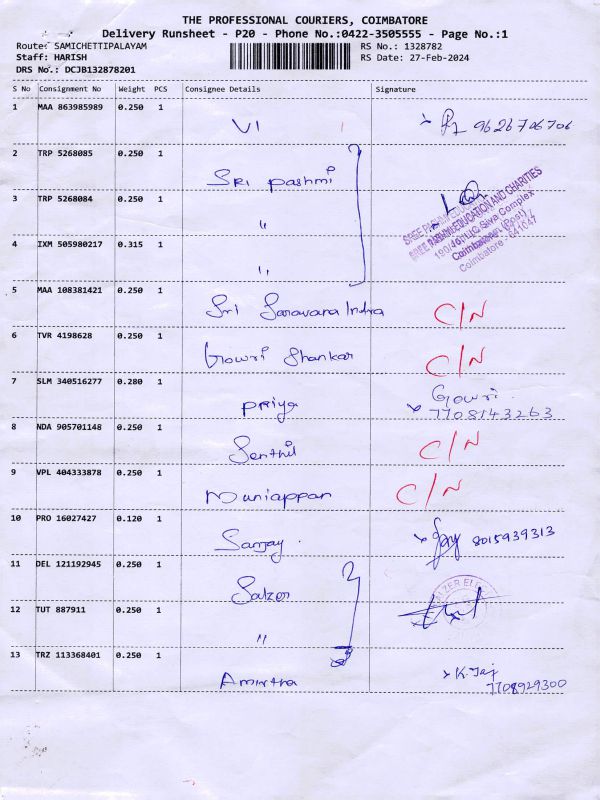 THE PROFESSIONAL COURIERS, COIMBATORE
Delivery Runsheet - P20 - Phone No.:0422-3505555 - Page No.:1
Route: SAMICHETTIPALAYAM
RS No.: 1328782
Staff: HARISH
RS Date: 27-Feb-2024
DRS No.: DCJB132878201
S No Consignment No Weight PCS Consignee Details Signature
1 MAA 863985989 0.250 1
VI 9626706706
2 TRP 5268085 0.250 1
SRI Pashmi
3 TRP 5268084 0.250 1
"
SREE PASHMI EDUCATION AND CHARITIES
Siva Complex
(Post)
Coimbatore - 641047
4 IXM 505980217 0.315 1
"
5 MAA 108381421 0.250 1
Sri Saravana Indra C/N
6 TVR 4198628 0.250 1
Gowri Shankar C/N
7 SLM 340516277 0.280 1
Priya Gowri.
7708143263
8 NDA 905701148 0.250 1
Senthil C/N
9 VPL 404333878 0.250 1
Muniappan C/N
10 PRO 16027427 0.120 1
Sanjay. 8015939313
11 DEL 121192945 0.250 1
Salzer
12 TUT 887911 0.250 1
"
13 TRZ 113368401 0.250 1
Amirtha K. Taj
7708929300